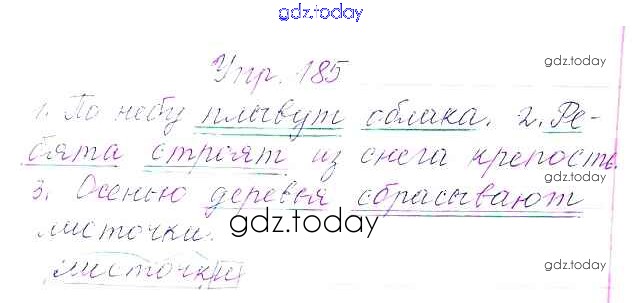 gdz.today
Упр. 185
gdz.today
1. По небу плывут облака. 2. Ре-
бята строят из снега крепость.
3. Осенью деревья сбрасывают
gdz.today
листочки.
листочки
gdz.today